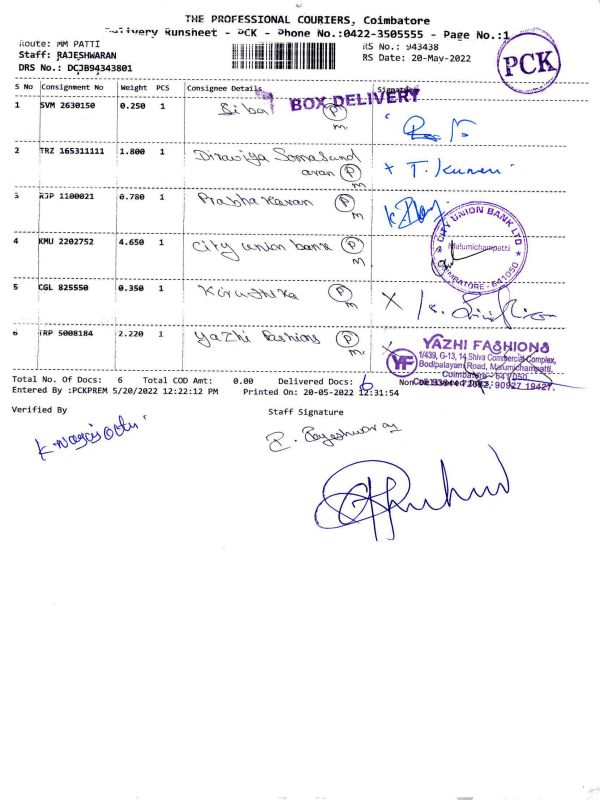 THE PROFESSIONAL COURIERS, Coimbatore
Delivery Runsheet - PCK - Phone No.:0422-3505555 - Page No.:1
Route: MM PATTI
RS No.: 943438
Staff: RAJESHWARAN
RS Date: 20-May-2022
DRS No.: DCJB94343801
PCK
S No Consignment No Weight PCS Consignee Details Signature
BOX DELIVERY
1 SVM 2630150 0.250 1 Siba P M
2 TRZ 165311111 1.800 1 P M T. Kumari
3 1100021 0.780 1 Prabhakaran P M
4 KMU 2202752 4.650 1 City union bank P M
CITY UNION BANK LTD
Malumichampatti
COIMBATORE - 641050
5 CGL 825550 0.350 1 P M
6 TRP 5008184 2.220 1 Yazhi fashions P M
YAZHI FASHIONS
YF 1/439, G-13, 14 Shiva Commercial Complex,
Bodipalayam Road, Malumichampatti,
Coimbatore - 641 050.
90927 19427.
Total No. Of Docs: 6 Total COD Amt: 0.00 Delivered Docs: 6
Entered By :PCKPREM 5/20/2022 12:22:12 PM Printed On: 20-05-2022 12:31:54
Verified By Staff Signature